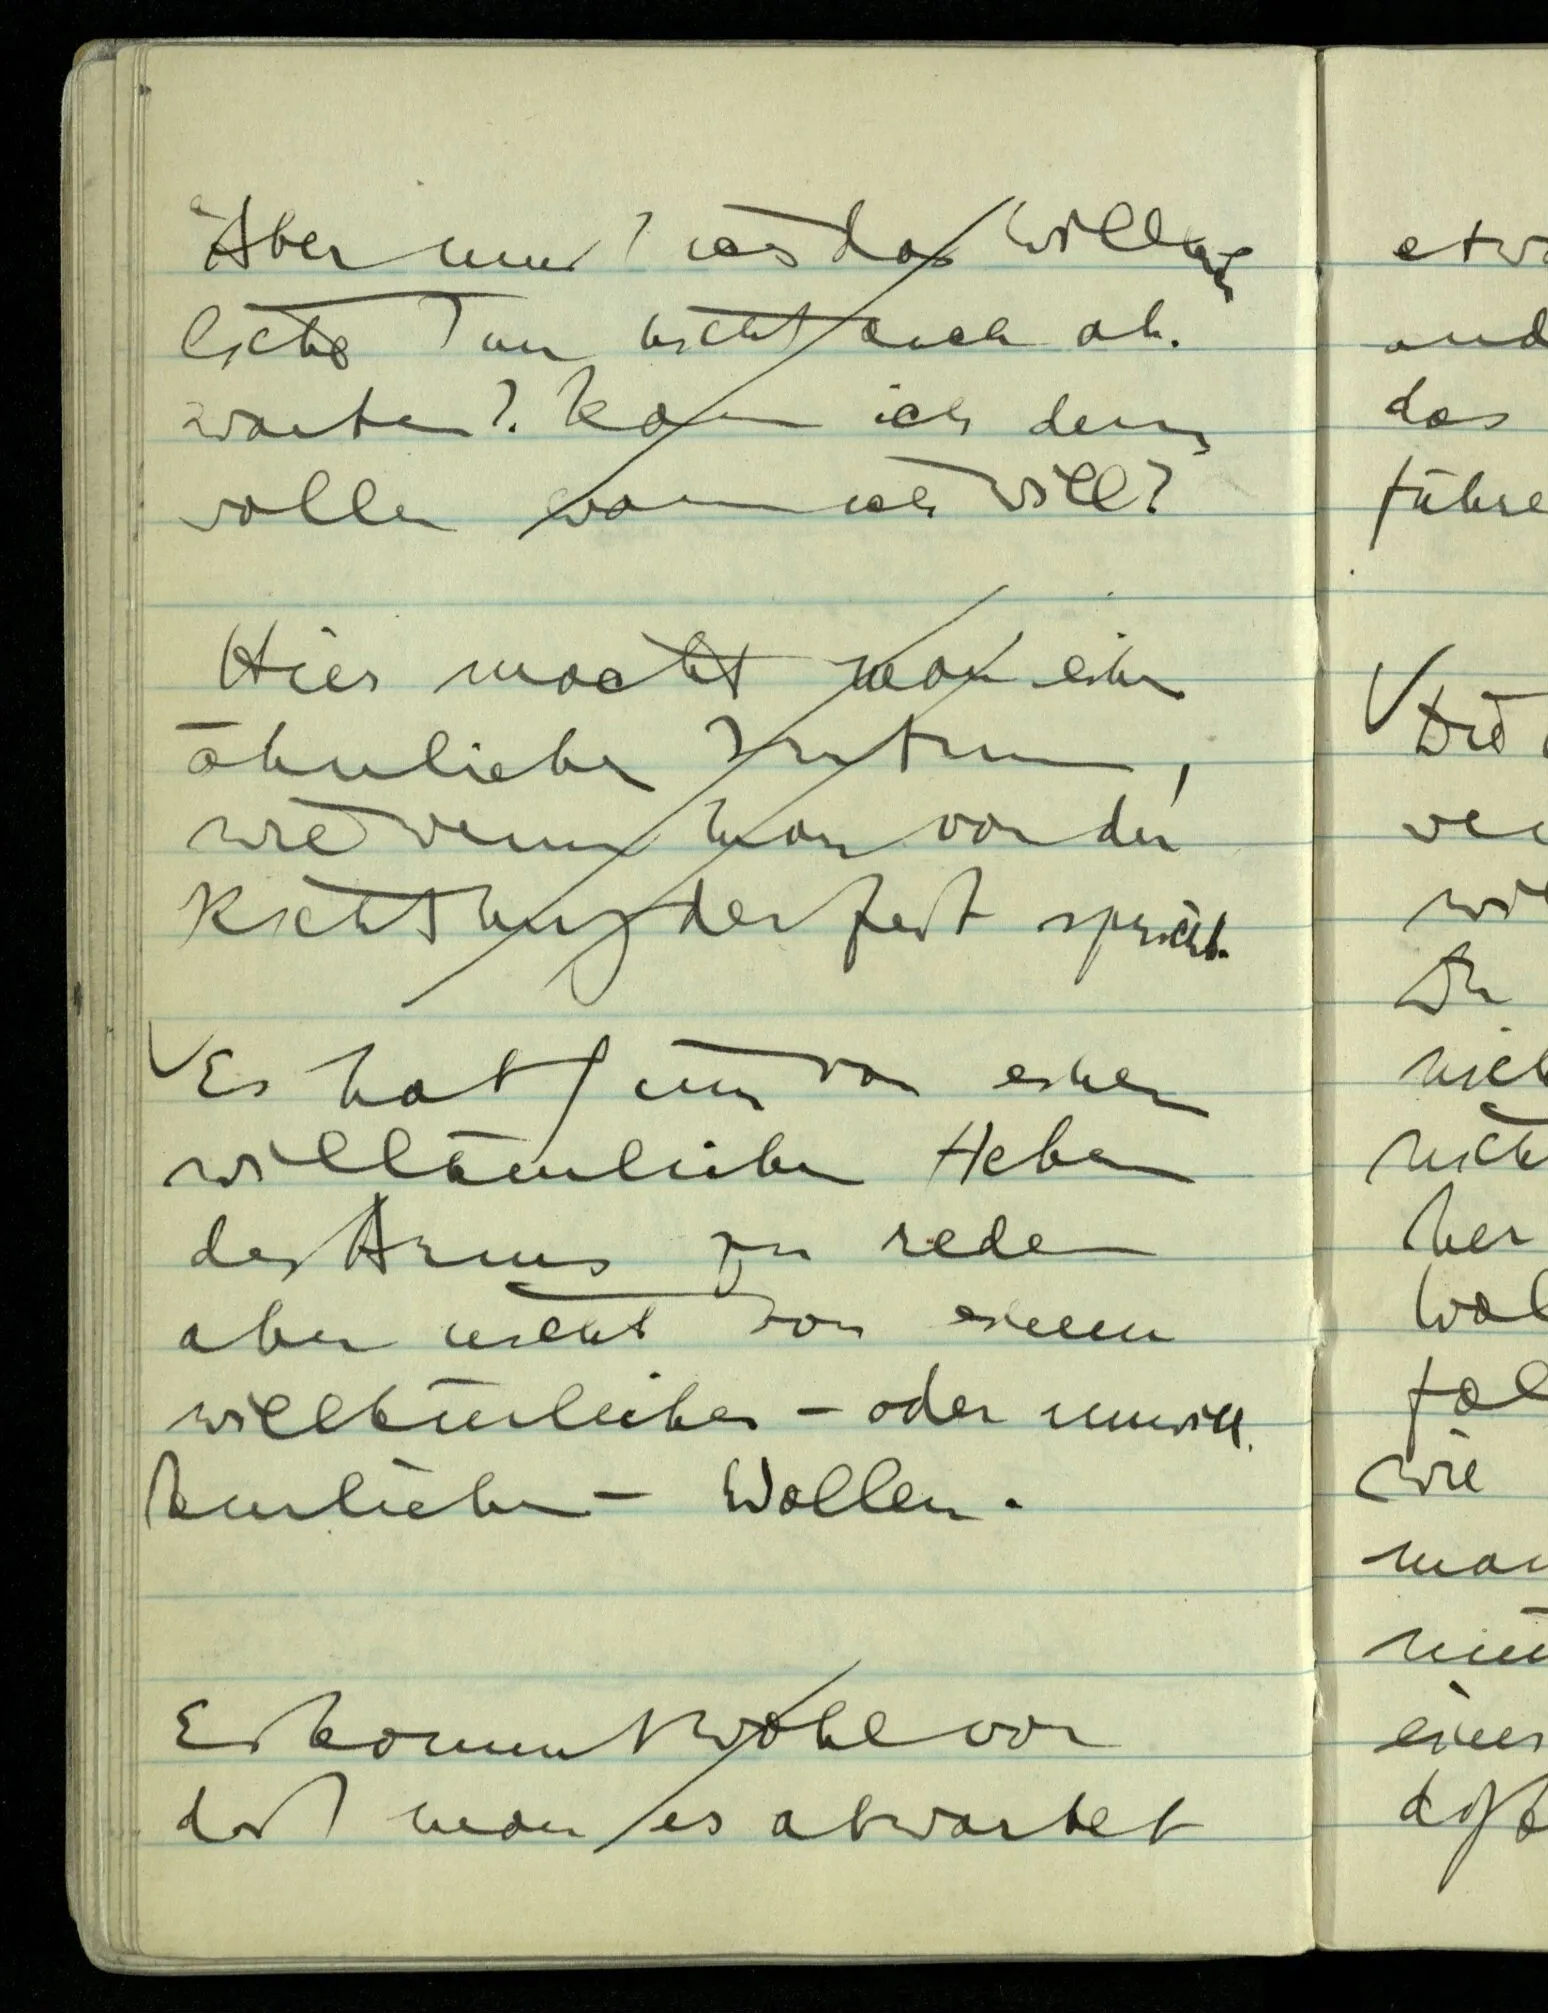 Aber muß ich das Willkür-
liche Tun nicht auch ab-
warten? Kann ich denn
wollen wann ich will?
Hier macht man einen
ähnlichen Irrtum,
wie wenn man von der
Richtung der Zeit spricht.
Es hat Sinn von einem
willkürlichen Heben
des Arms zu reden
aber nicht von einem
willkürlichen – oder unwill-
kürlichen – Wollen.
Es kommt wohl vor
daß man es abwartet
etw
und
das
führe
Die
wil
nich
nich
her
wie
man
eines